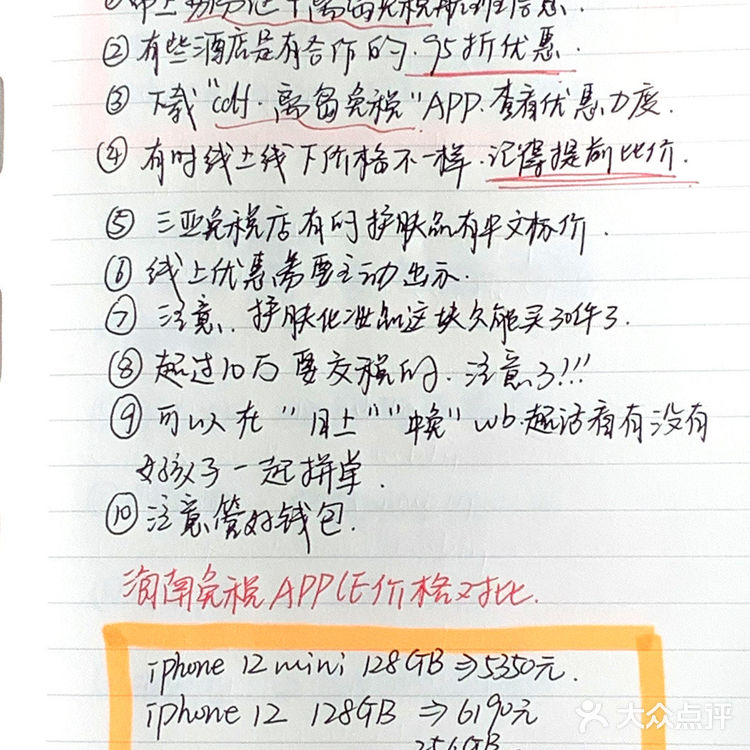 ②有些酒店是有合作的.95折优惠.
③下载"cdf.离岛免税"APP.查看优惠力度.
④有时线上线下价格不一样.记得提前比价.
⑤三亚免税店有的护肤品有中文标价.
⑥线上优惠需要主动出示.
⑦注意.护肤化妆品这块只能买30件了.
⑧超过10万要交税的.注意了!!!
⑨可以在"日上""中免"wb.超话看有没有
女孩子一起拼单.
⑩注意管好钱包.
海南免税APPLE价格对比.
iphone 12 mini 128GB⇒5350元.
iphone 12 128GB⇒6190元
256GB
大众点评